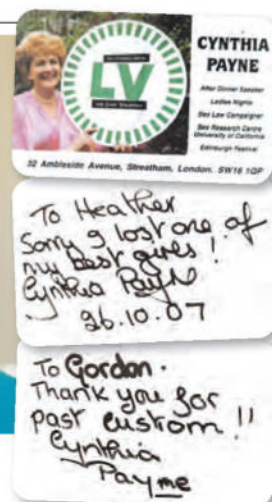 CYNTHIA
PAYNE
LV
After Dinner Speaker
Ladies Nights
Sex Law Campaigner
Sex Research Centre
University of California
Edinburgh Festival
32 Ambleside Avenue, Streatham, London. SW16 1QP
To Heather
Sorry I lost one of
my best girls!
Cynthia Payne
26.10.07
To Gordon.
Thank you for
past custom!!
Cynthia
Payme